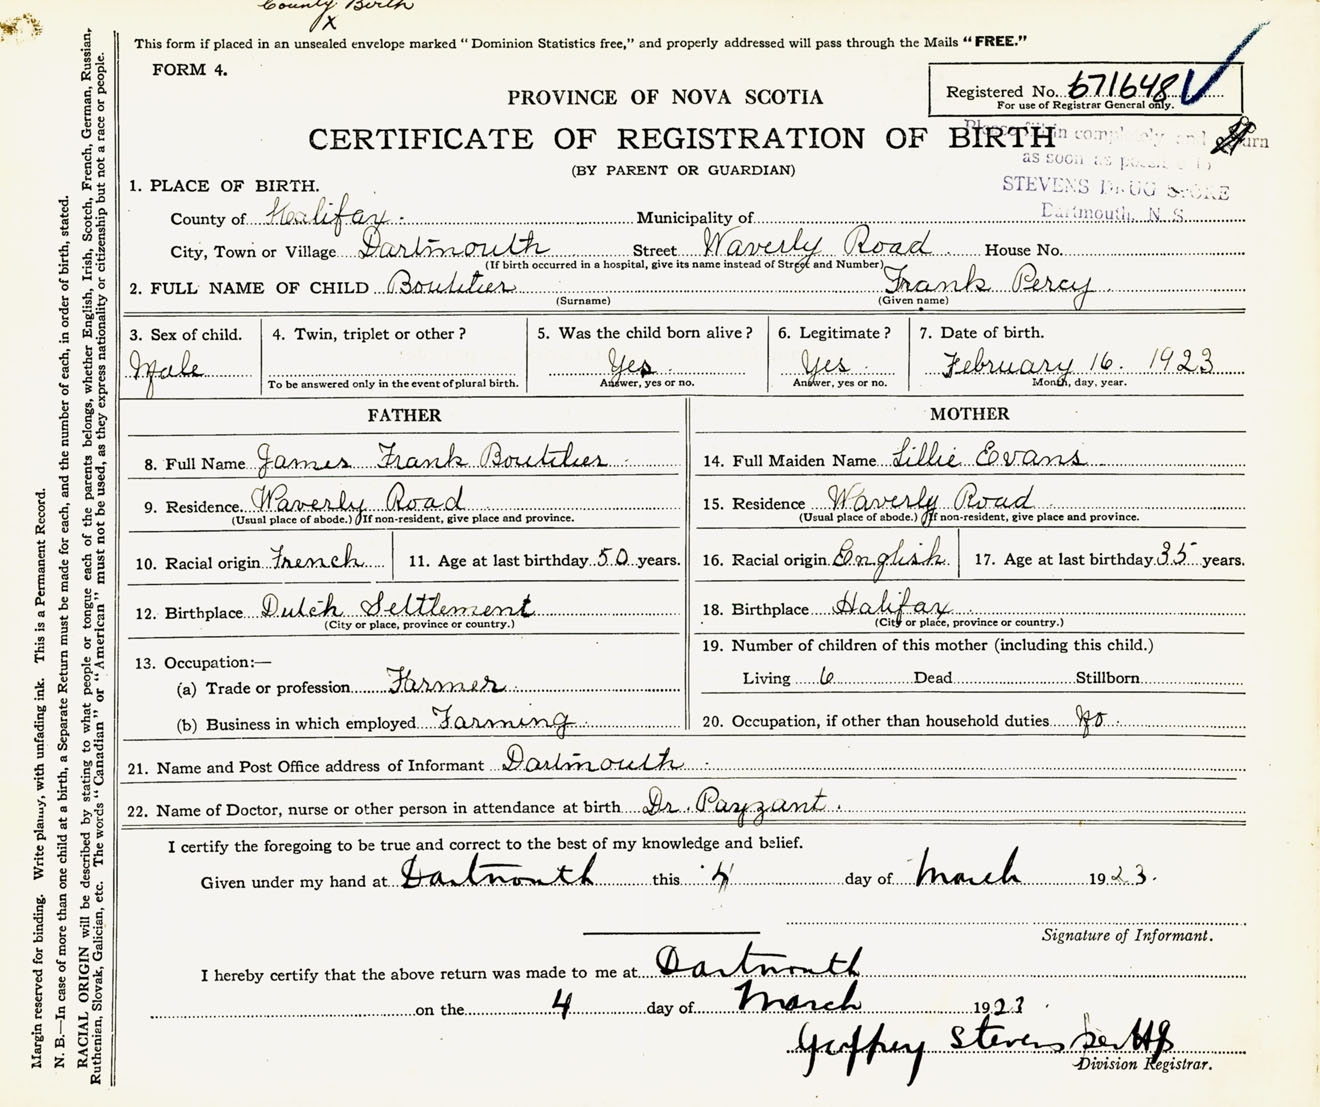 County Birth
X
This form if placed in an unsealed envelope marked "Dominion Statistics free," and properly addressed will pass through the Mails "FREE."
FORM 4.
Registered No. 671648
For use of Registrar General only.
PROVINCE OF NOVA SCOTIA
CERTIFICATE OF REGISTRATION OF BIRTH
(BY PARENT OR GUARDIAN)
Please fill in completely and return
as soon as possible to
STEVENS DRUG STORE
Dartmouth, N. S.
1. PLACE OF BIRTH.
County of Halifax. Municipality of
City, Town or Village Dartmouth Street Waverly Road House No.
(If birth occurred in a hospital, give its name instead of Street and Number)
2. FULL NAME OF CHILD Boutilier Frank Percy
(Surname) (Given name)
3. Sex of child. 4. Twin, triplet or other? 5. Was the child born alive? 6. Legitimate? 7. Date of birth.
Male Yes Yes February 16. 1923
To be answered only in the event of plural birth. Answer, yes or no. Answer, yes or no. Month, day, year.
FATHER
8. Full Name James Frank Boutilier
9. Residence. Waverly Road
(Usual place of abode.) If non-resident, give place and province.
10. Racial origin French 11. Age at last birthday 50 years.
12. Birthplace Dutch Settlement
(City or place, province or country.)
13. Occupation:—
(a) Trade or profession Farmer
(b) Business in which employed Farming
MOTHER
14. Full Maiden Name Lillie Evans
15. Residence Waverly Road
(Usual place of abode.) If non-resident, give place and province.
16. Racial origin English 17. Age at last birthday 35 years.
18. Birthplace Halifax
(City or place, province or country.)
19. Number of children of this mother (including this child.)
Living 6 Dead Stillborn
20. Occupation, if other than household duties No.
21. Name and Post Office address of Informant Dartmouth
22. Name of Doctor, nurse or other person in attendance at birth Dr. Payzant.
I certify the foregoing to be true and correct to the best of my knowledge and belief.
Given under my hand at Dartmouth this 4 day of March 1923.
Signature of Informant.
I hereby certify that the above return was made to me at Dartmouth
on the 4 day of March 1923
Geoffrey Stevens per
Division Registrar.
Margin reserved for binding. Write plainly, with unfading ink. This is a Permanent Record.
N. B.—In case of more than one child at a birth, a Separate Return must be made for each, and the number of each, in order of birth, stated.
RACIAL ORIGIN will be described by stating to what people or tongue each of the parents belongs, whether English, Irish, Scotch, French, German, Russian,
Ruthenian, Slovak, Galician, etc. The words "Canadian" or "American" must not be used, as they express nationality or citizenship but not a race or people.